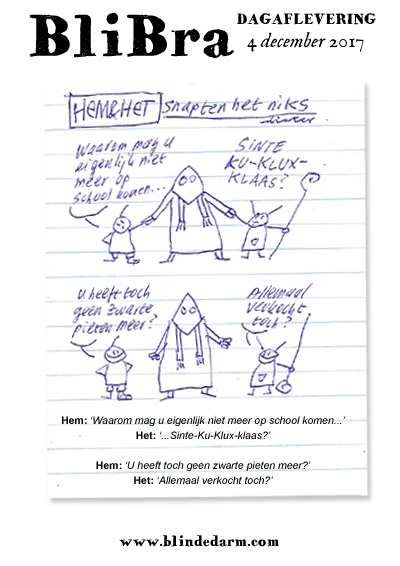 BliBra
DAGAFLEVERING
4 december 2017
HEM&HET snapten het niks
Waarom mag u
eigenlijk niet
meer op
school komen...
SiNTE
KU-KLUX-
KLAAS?
U heeft toch
geen zwarte
pieten meer?
Allemaal
verkocht
toch?
Hem: ‘Waarom mag u eigenlijk niet meer op school komen...’
Het: ‘...Sinte-Ku-Klux-klaas?’
Hem: ‘U heeft toch geen zwarte pieten meer?’
Het: ‘Allemaal verkocht toch?’
www.blindedarm.com